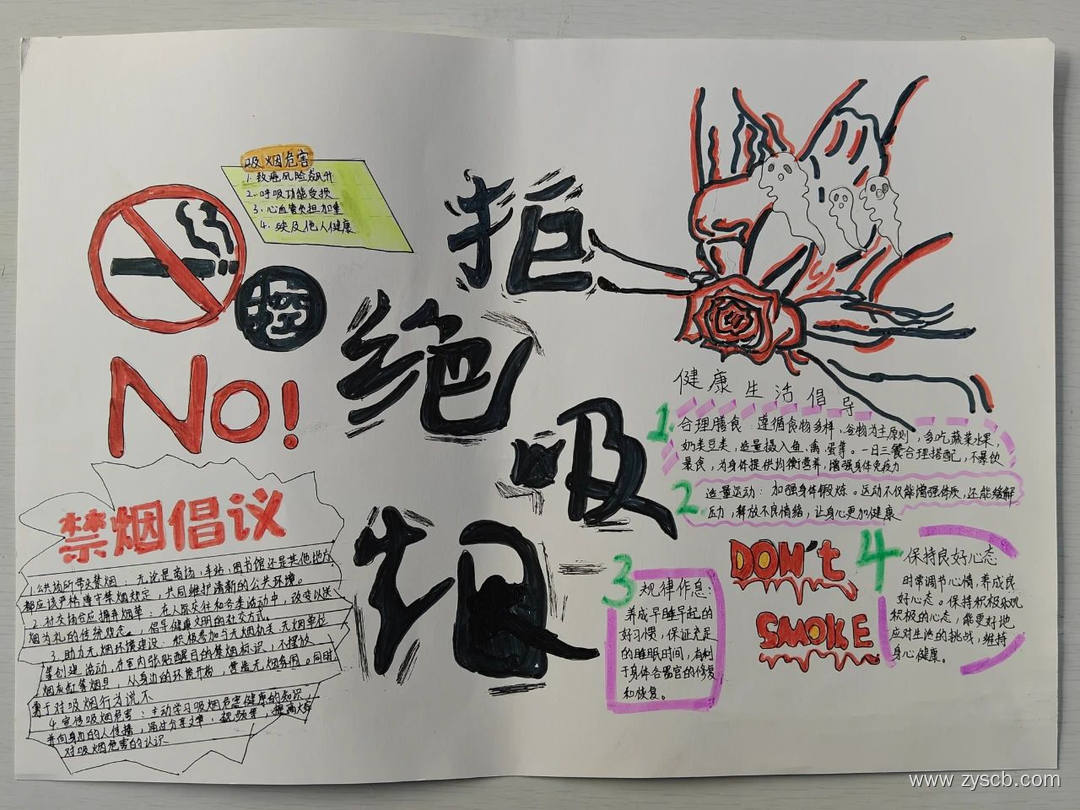 吸烟危害
1.致癌风险飙升
2.呼吸功能受损
3.心血管负担加重
4.殃及他人健康
控
No!
拒
绝
吸
烟
禁烟倡议
1.公共场所带头禁烟：无论是商场、车站、图书馆还是其他地方
都应该严格遵守禁烟规定，共同维护清新的公共环境。
2.社交场合应摒弃烟草：在人际交往和各类活动中，改变以送
烟为礼的传统观念，倡导健康文明的社交方式。
3.助力无烟环境建设：积极参加与无烟机关、无烟单位
等创建活动，在室内张贴醒目的禁烟标识，不摆放
烟灰缸等烟具，从身边的环境开始，营造无烟氛围。同时
勇于对吸烟行为说不
4.宣传吸烟危害：主动学习吸烟危害健康的知识
并向身边的人传播，通过分享文章、视频等，提高大家
对吸烟危害的认识
健康生活倡导
1.合理膳食：遵循食物多样，谷物为主原则，多吃蔬菜水果、
奶类豆类，适量摄入鱼、禽、蛋等。一日三餐合理搭配，不暴饮
暴食，为身体提供均衡营养，增强身体免疫力
2 适量运动：加强身体锻炼。运动不仅能增强体质，还能缓解
压力，释放不良情绪，让身心更加健康
3 规律作息：
养成早睡早起的
好习惯，保证充足
的睡眠时间，有利
于身体各器官的修复
和恢复。
DON't
SMOKE
4 保持良好心态
时常调节心情，养成良
好心态。保持积极乐观
积极的心态，能更好地
应对生活的挑战，维持
身心健康。
www.zyscb.com